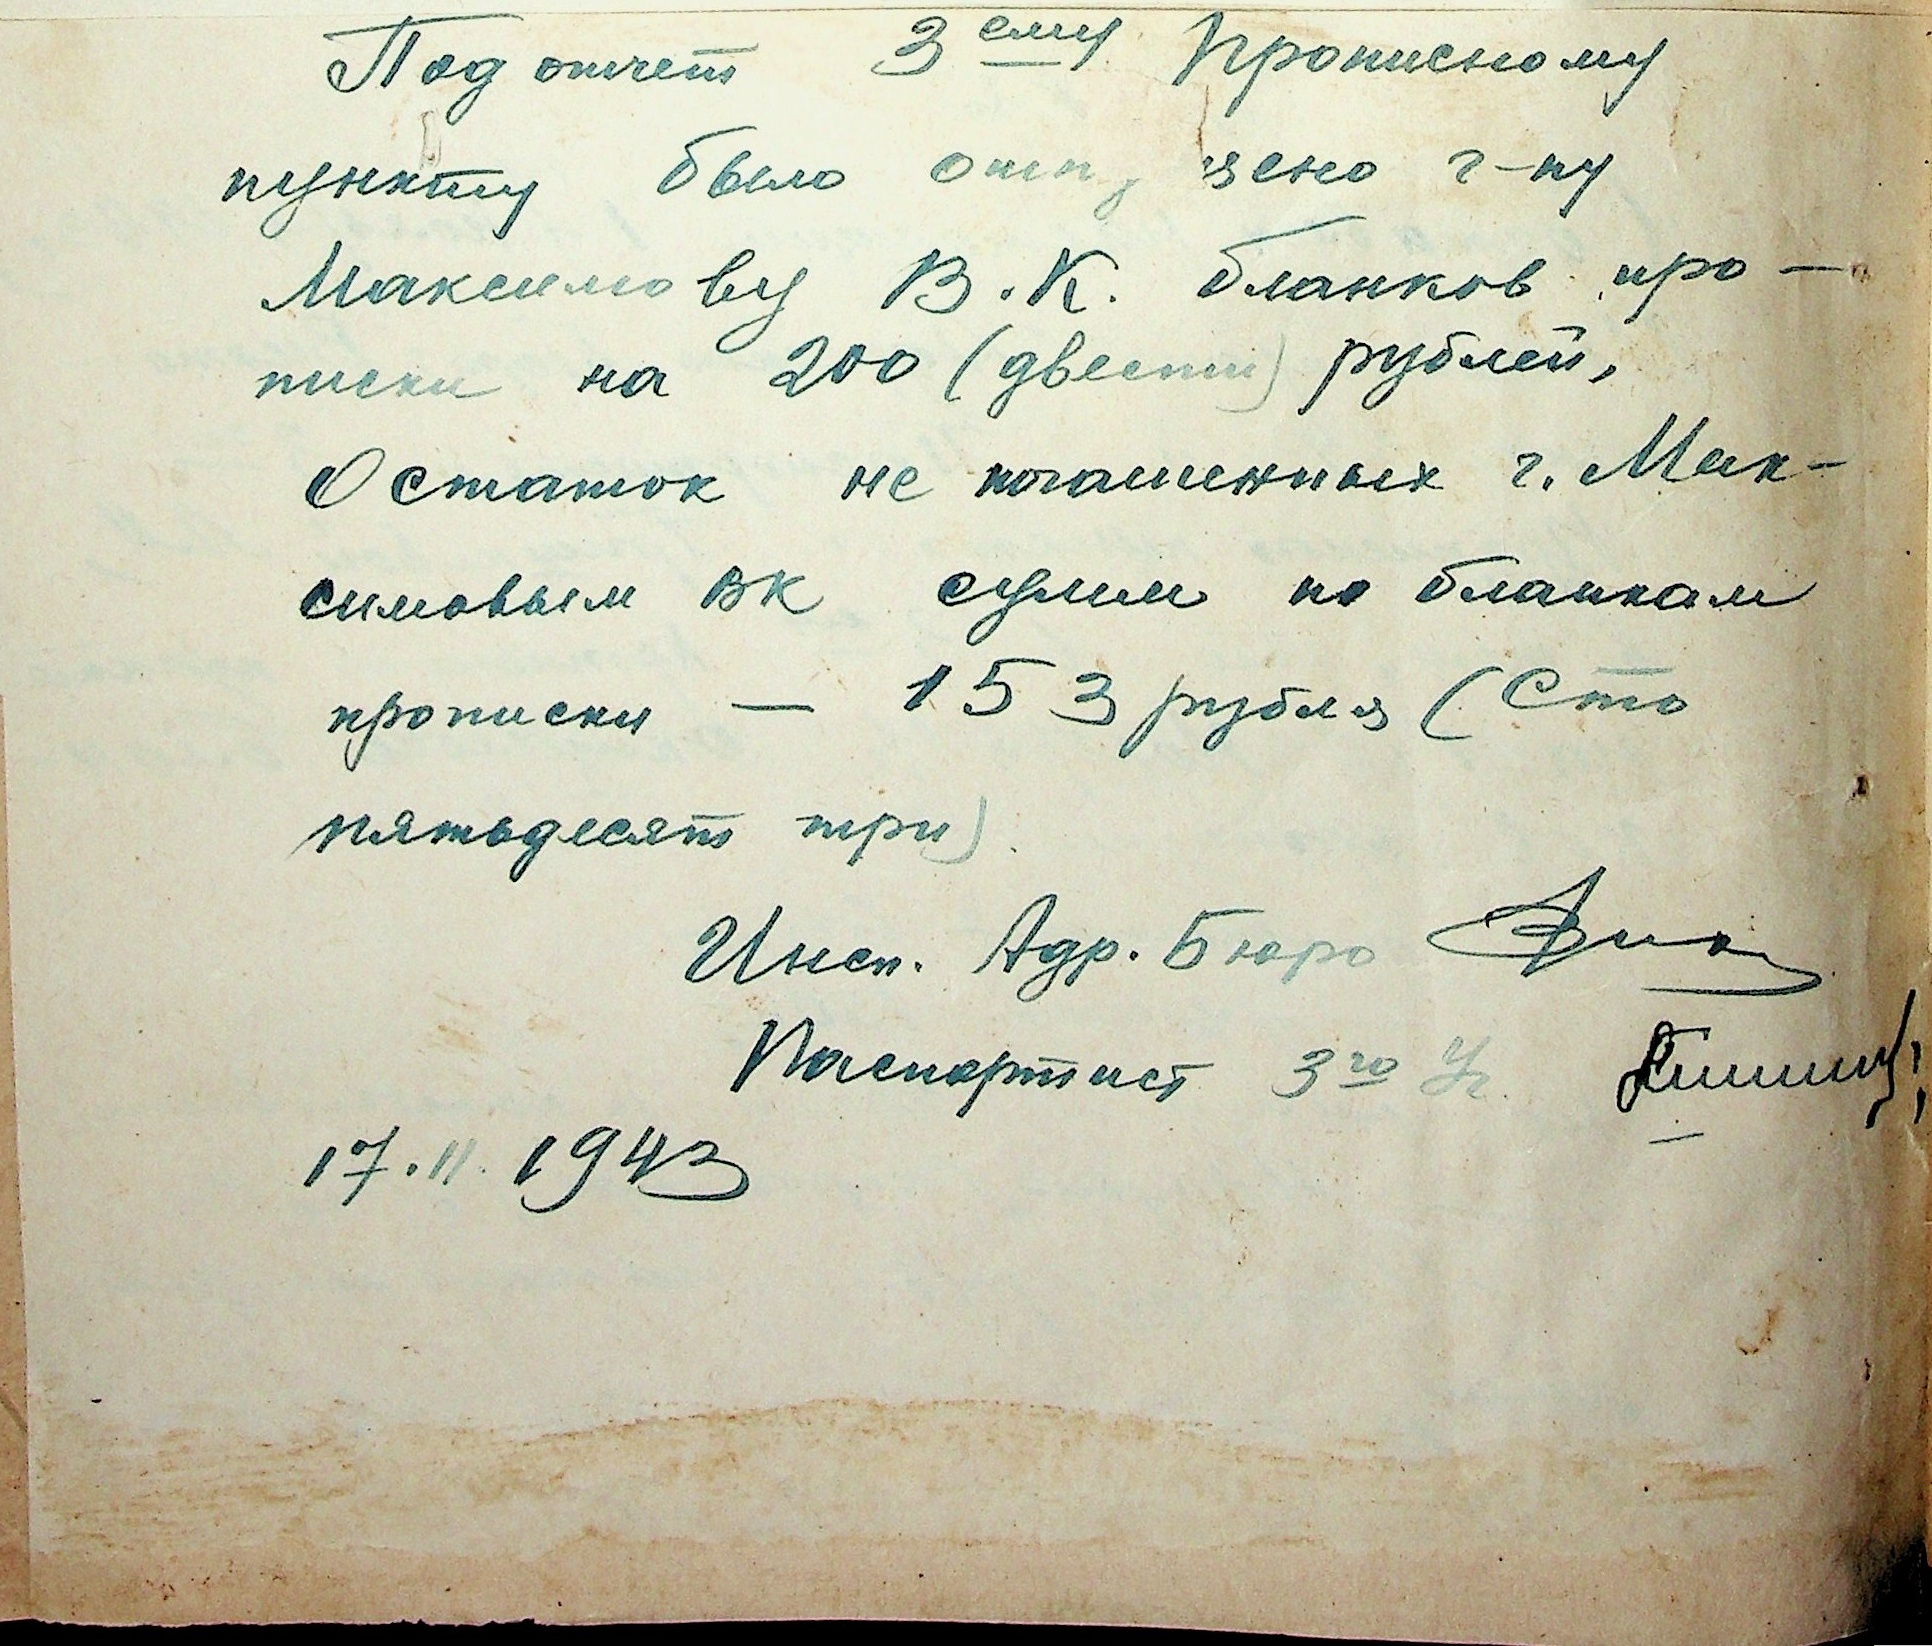 Под отчет 3ему Прописному
пункту было отпущено г-ну
Максимову В.К. бланков про-
писки на 200 (двести) рублей,
Остаток не погашенных г. Мак-
симовым ВК сумм по бланкам
прописки — 153 рубля (Сто
пятьдесят три)
Инсп. Адр. Бюро
Паспортист 3го Уч.
17.II.1943